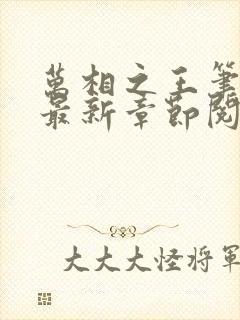 萬相之王筆
最新章節閱
大大大怪將軍